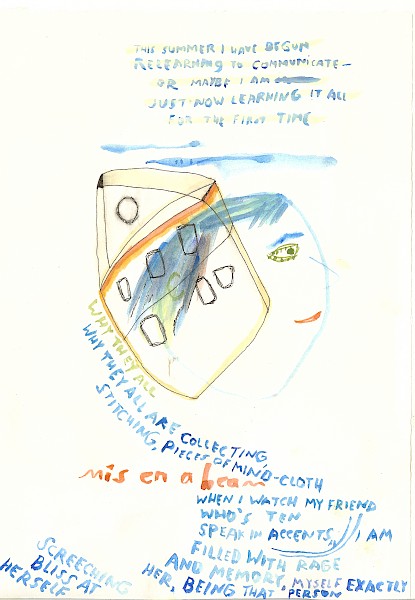 THIS SUMMER I HAVE BEGUN
RELEARNING TO COMMUNICATE—
OR MAYBE I AM
JUST NOW LEARNING IT ALL
FOR THE FIRST TIME
WHY THEY ALL
WHY THEY ALL ARE COLLECTING
STITCHING, PIECES OF MIND-CLOTH
mis en a beam
WHEN I WATCH MY FRIEND
WHO'S TEN
SPEAK IN ACCENTS, I AM
FILLED WITH RAGE
AND MEMORY,
HER, BEING THAT PERSON MYSELF EXACTLY
SCREECHING
BLISS AT
HERSELF